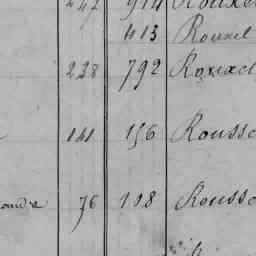 247 914 Rouxel
413 Rouxel
238 792 Rouxel
141 156 Rousso
andre 76 108 Rousso